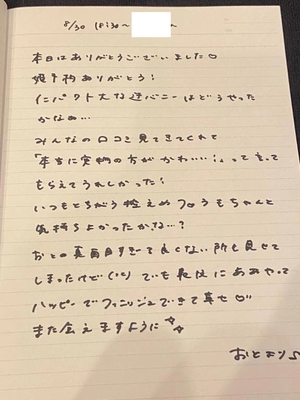 8/30 18:30〜
本日はありがとうございました♡
姫予約ありがとう!
インパクト大な逆バニーはどうやった
かなぁ…
みんなの口コミ見てきてくれて
「本当に実物の方がかわ…!」って言って
もらえてうれしかった!
いつもとちがう控えめフロうもちゃんと
気持ちよかったかな…?
おとの真面目すぎて良くない所も見せて
しまったけど でも最後に
ハッピーでフィニッシュできて幸せ♡
また会えますように☆
おとより